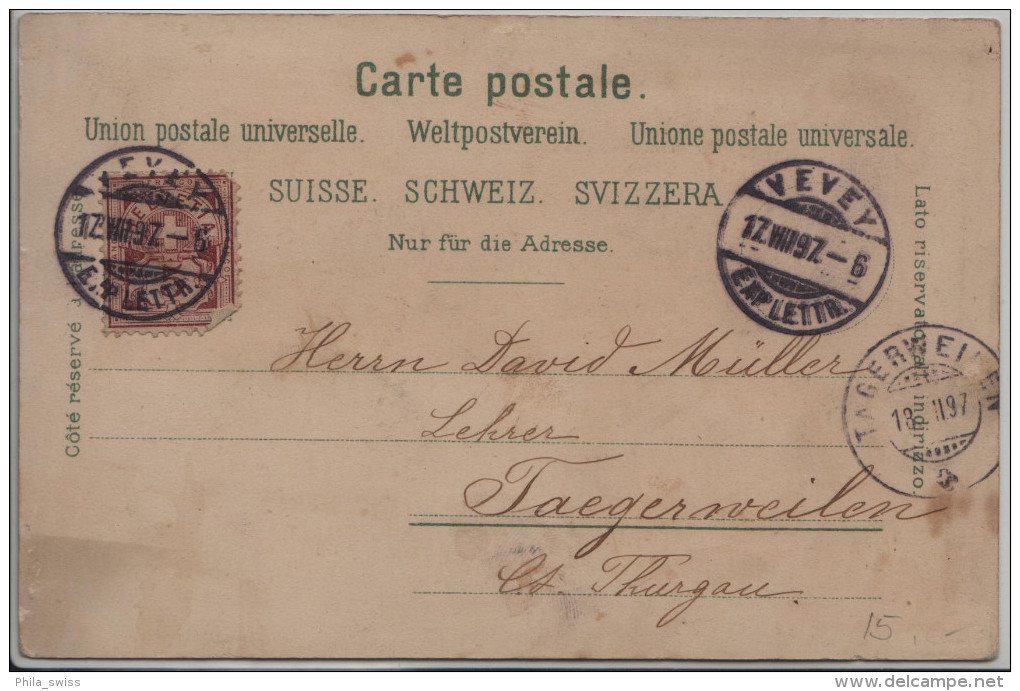 Carte postale.
Union postale universelle. Weltpostverein. Unione postale universale.
SUISSE. SCHWEIZ. SVIZZERA
Nur für die Adresse.
Côté réservé
Lato riservato indirizzo.
VEVEY
17.VIII.97.–6
EXP. LETTR.
VEVEY
17.VIII.97.–6
EXP. LETTR.
TÄGERWEILEN
18. II 97
Herrn David Müller
Lehrer
Taegerweilen
Ct. Thurgau
15.–
Phila_swiss
www.delcampe.net